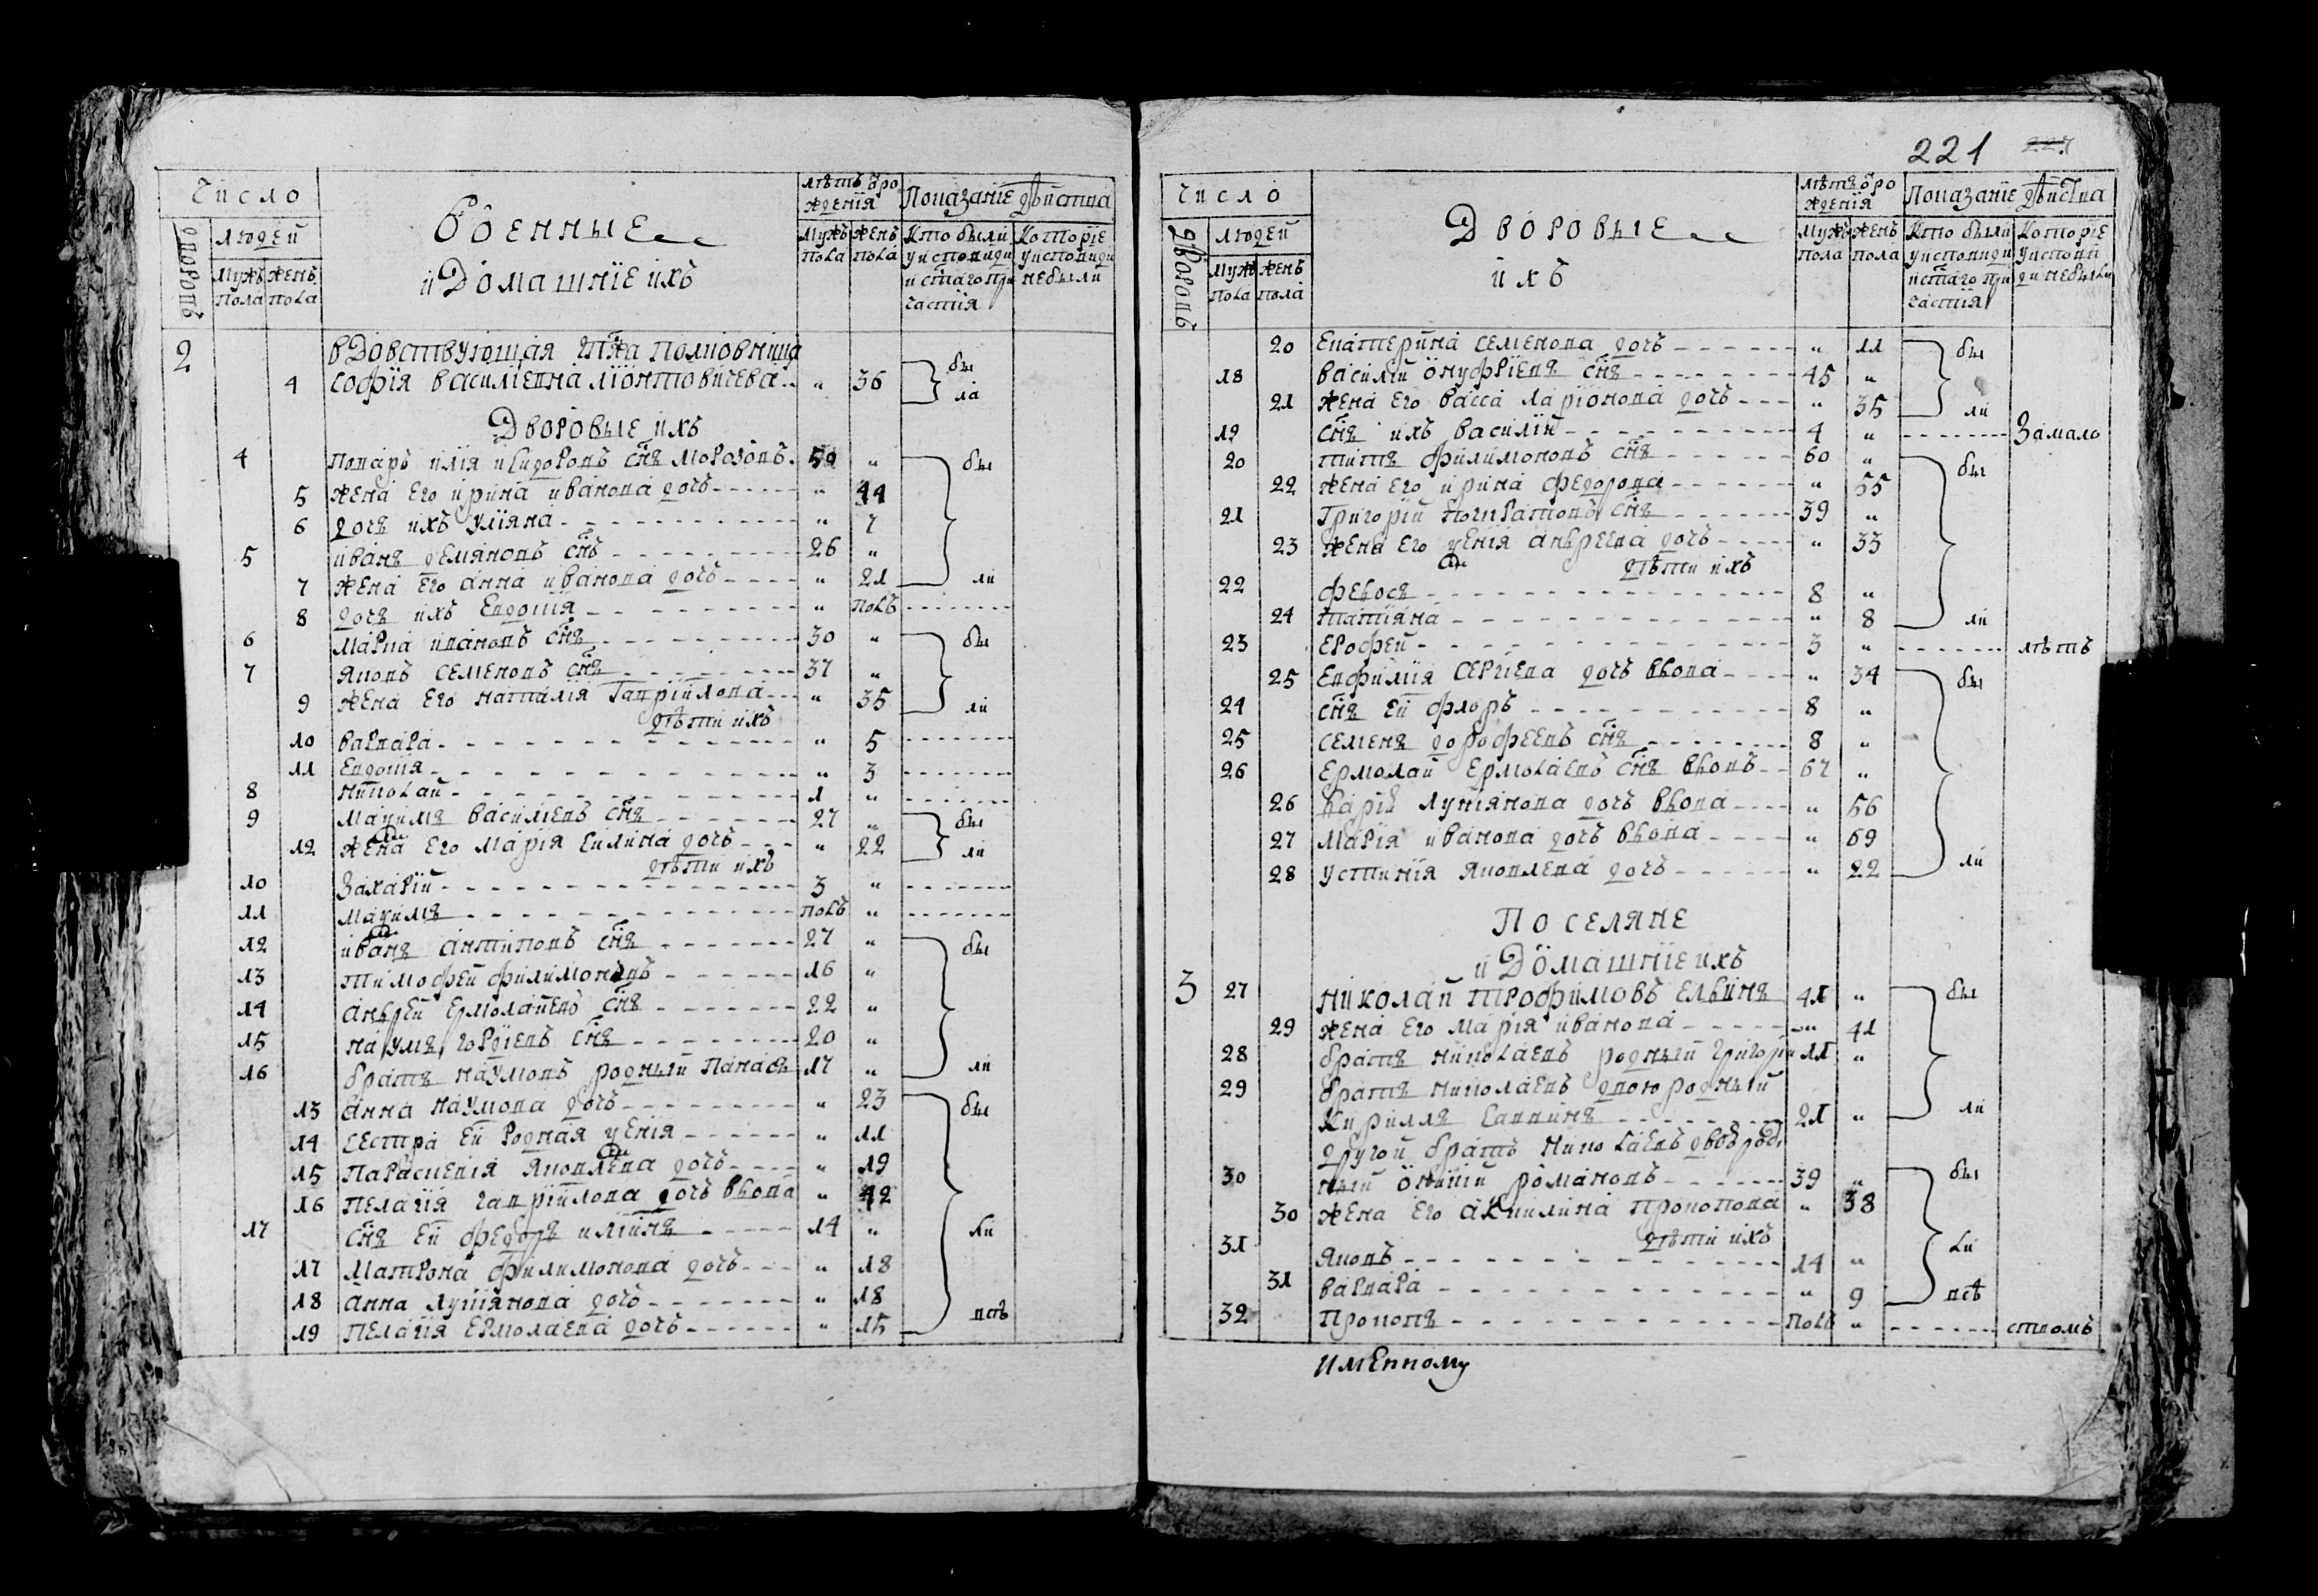 Число
Военные
и Домашніе ихъ
лѣтъ ѿ ро
жденія
Показаніе дѣйства
дворовъ
людей
мужъ пола
женъ пола
мужъ пола
женъ пола
Кто были у исповѣди и стаго причастія
Которіе у исповѣди небыли
2
вдовствующая гпжа полковница
4 Софія василіевна ліонтовичева " 36 была
Дворовые ихъ
4 Поваръ илія исидоровъ снъ морозовъ 50 " бы
5 жена его ирина иванова дочъ " 44
6 дочъ ихъ уліяна " 7
5 иванъ демяновъ снъ 26 "
7 жена его анна иванова дочъ " 21 ли
8 дочъ ихъ Евдокія " полъ
6 Марка ивановъ снъ 30 " бы
7 Яковъ семеновъ снъ 37 "
9 жена его наталія Гавріилова " 35 ли
дѣти ихъ
10 варвара " 5
11 Евдокія " 3
8 николай 1 "
9 Маѯимъ василіевъ снъ 27 " бы
12 жена его Марія Еилина дочъ " 22 ли
дѣти ихъ
10 Захарій 3 "
11 Маѯимъ полъ "
12 иванъ антиповъ снъ 27 " бы
13 тимофей филимоновъ 16 "
14 андрей Ермолаевъ снъ 22 "
15 наумъ гордіевъ снъ 20 "
16 братъ наумовъ родный Панасъ 17 " ли
13 анна наумова дочъ " 23 бы
14 сестра ей родная ѯенія " 11
15 Параскевія Яковлева дочъ " 19
16 Пелагія гавріилова дочъ вдова " 42
17 снъ ей федоръ иліинъ 14 " ли
17 Матрона филимонова дочъ " 18
18 анна лукіянова дочъ " 18
19 Пелагія Ермолаева дочъ " 15 всѣ
221
Число
Дворовые
ихъ
лѣтъ ѿ ро
жденія
Показаніе дѣйства
дворовъ
людей
мужъ пола
женъ пола
мужъ пола
женъ пола
Кто были у исповѣди и стаго причастія
Которіе у исповѣди небыли
20 Екатерина семенова дочъ " 11 бы
18 василій онуфріевъ снъ 45 "
21 жена его васса ларіонова дочъ " 35 ли
19 снъ ихъ василій 4 " За мало
20 титъ филимоновъ снъ 60 " бы
22 жена его ирина федорова " 55
21 Григорій понкратовъ снъ 39 "
23 жена его ѯенія андреева дочъ " 33
дѣти ихъ
22 федосъ 8 "
24 татіяна " 8 ли
23 Ерофей 3 " лѣтъ
25 Евфимія Сергіева дочъ вдова " 34 бы
24 снъ ей флоръ 8 "
25 семенъ дорофеевъ снъ 8 "
26 Ермолай Ермолаевъ снъ вдовъ 67 "
26 Дарія лукіянова дочъ вдова " 56
27 Марія иванова дочъ вдова " 69
28 устинія Яковлева дочъ " 22 ли
Поселяне
и Домашніе ихъ
3 27 николай трофимовъ Елдинъ 41 " бы
29 жена его Марія иванова " 41
28 братъ николаевъ родный григорій 11 "
29 братъ николаевъ двоюродный
Кирилъ Саввинъ 21 " ли
другой братъ николаевъ двоюрод
30 ный онисій романовъ 39 " бы
30 жена его акилина прокопова " 38
дѣти ихъ
31 Яковъ 14 " ли
31 варвара " 9 всѣ
32 Прокопъ полъ " ством
Именному